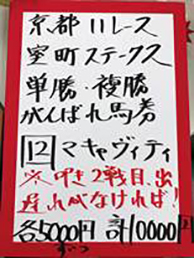 京都11レース
室町ステークス
単勝・複勝
がんばれ馬券
12 マキャヴィティ
※叩き2戦目、出
遅れがなければ!
各5000円 計10000円
ずつ